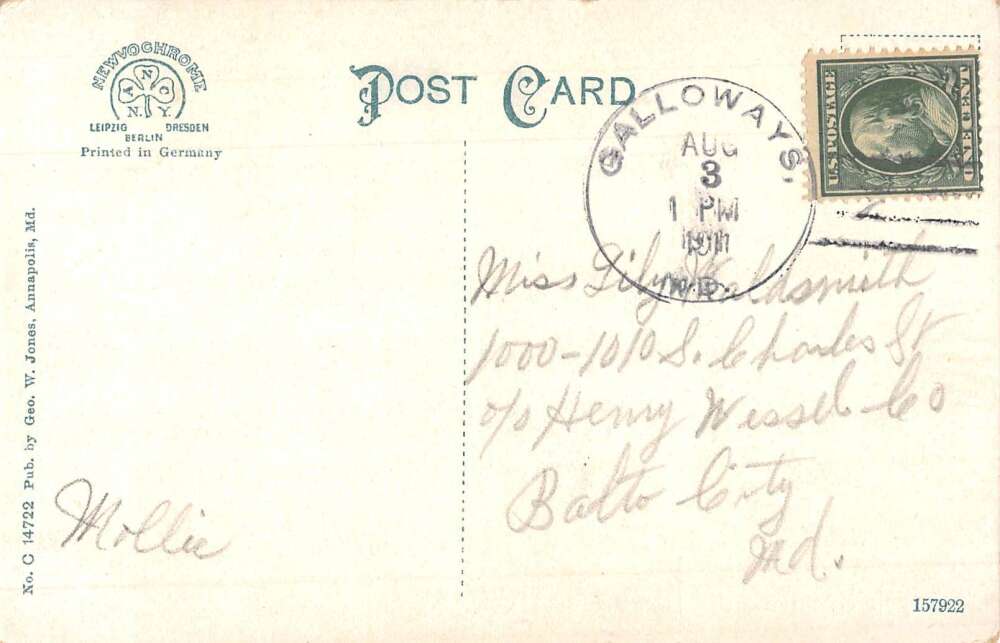 NEWVOCHROME
A N C
N. Y.
LEIPZIG DRESDEN
BERLIN
Printed in Germany
POST CARD
GALLOWAYS.
AUG
3
1 PM
1911
MD.
U.S. POSTAGE
ONE CENT
Miss Lily Waldsmith
1000-1010 S. Charles St
c/o Henry Wessel Co
Balto City
Md.
Mollie
No. C 14722 Pub. by Geo. W. Jones, Annapolis, Md.
157922